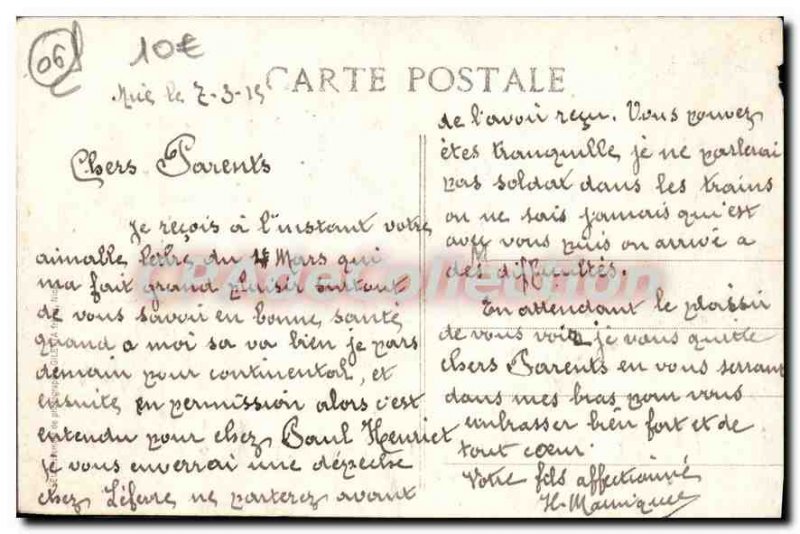 06
10€
CARTE POSTALE
Nice le 7-3-15
Chers Parents
Je reçois à l'instant votre
aimable lettre du 4 Mars qui
ma fait grand plaisir surtout
de vous savoir en bonne santé
quand a moi sa va bien je pars
demain pour continental, et
ensuite en permission alors c'est
entendu pour chez Paul Henriet
je vous enverrai une dépeche
chez Lefevre ne parterez avant
de l'avoir reçu. Vous pouvez
êtes tranquille, je ne parlerai
pas soldat dans les trains
on ne sais jamais qu'est
avec vous puis on arrive a
des difficultés.
En attendant le plaisir
de vous voir je vous quitte
chers Parents en vous serrant
dans mes bras pour vous
embrasser bien fort et de
tout cœur.
Votre fils affectionné
H.
CPAdeCollection